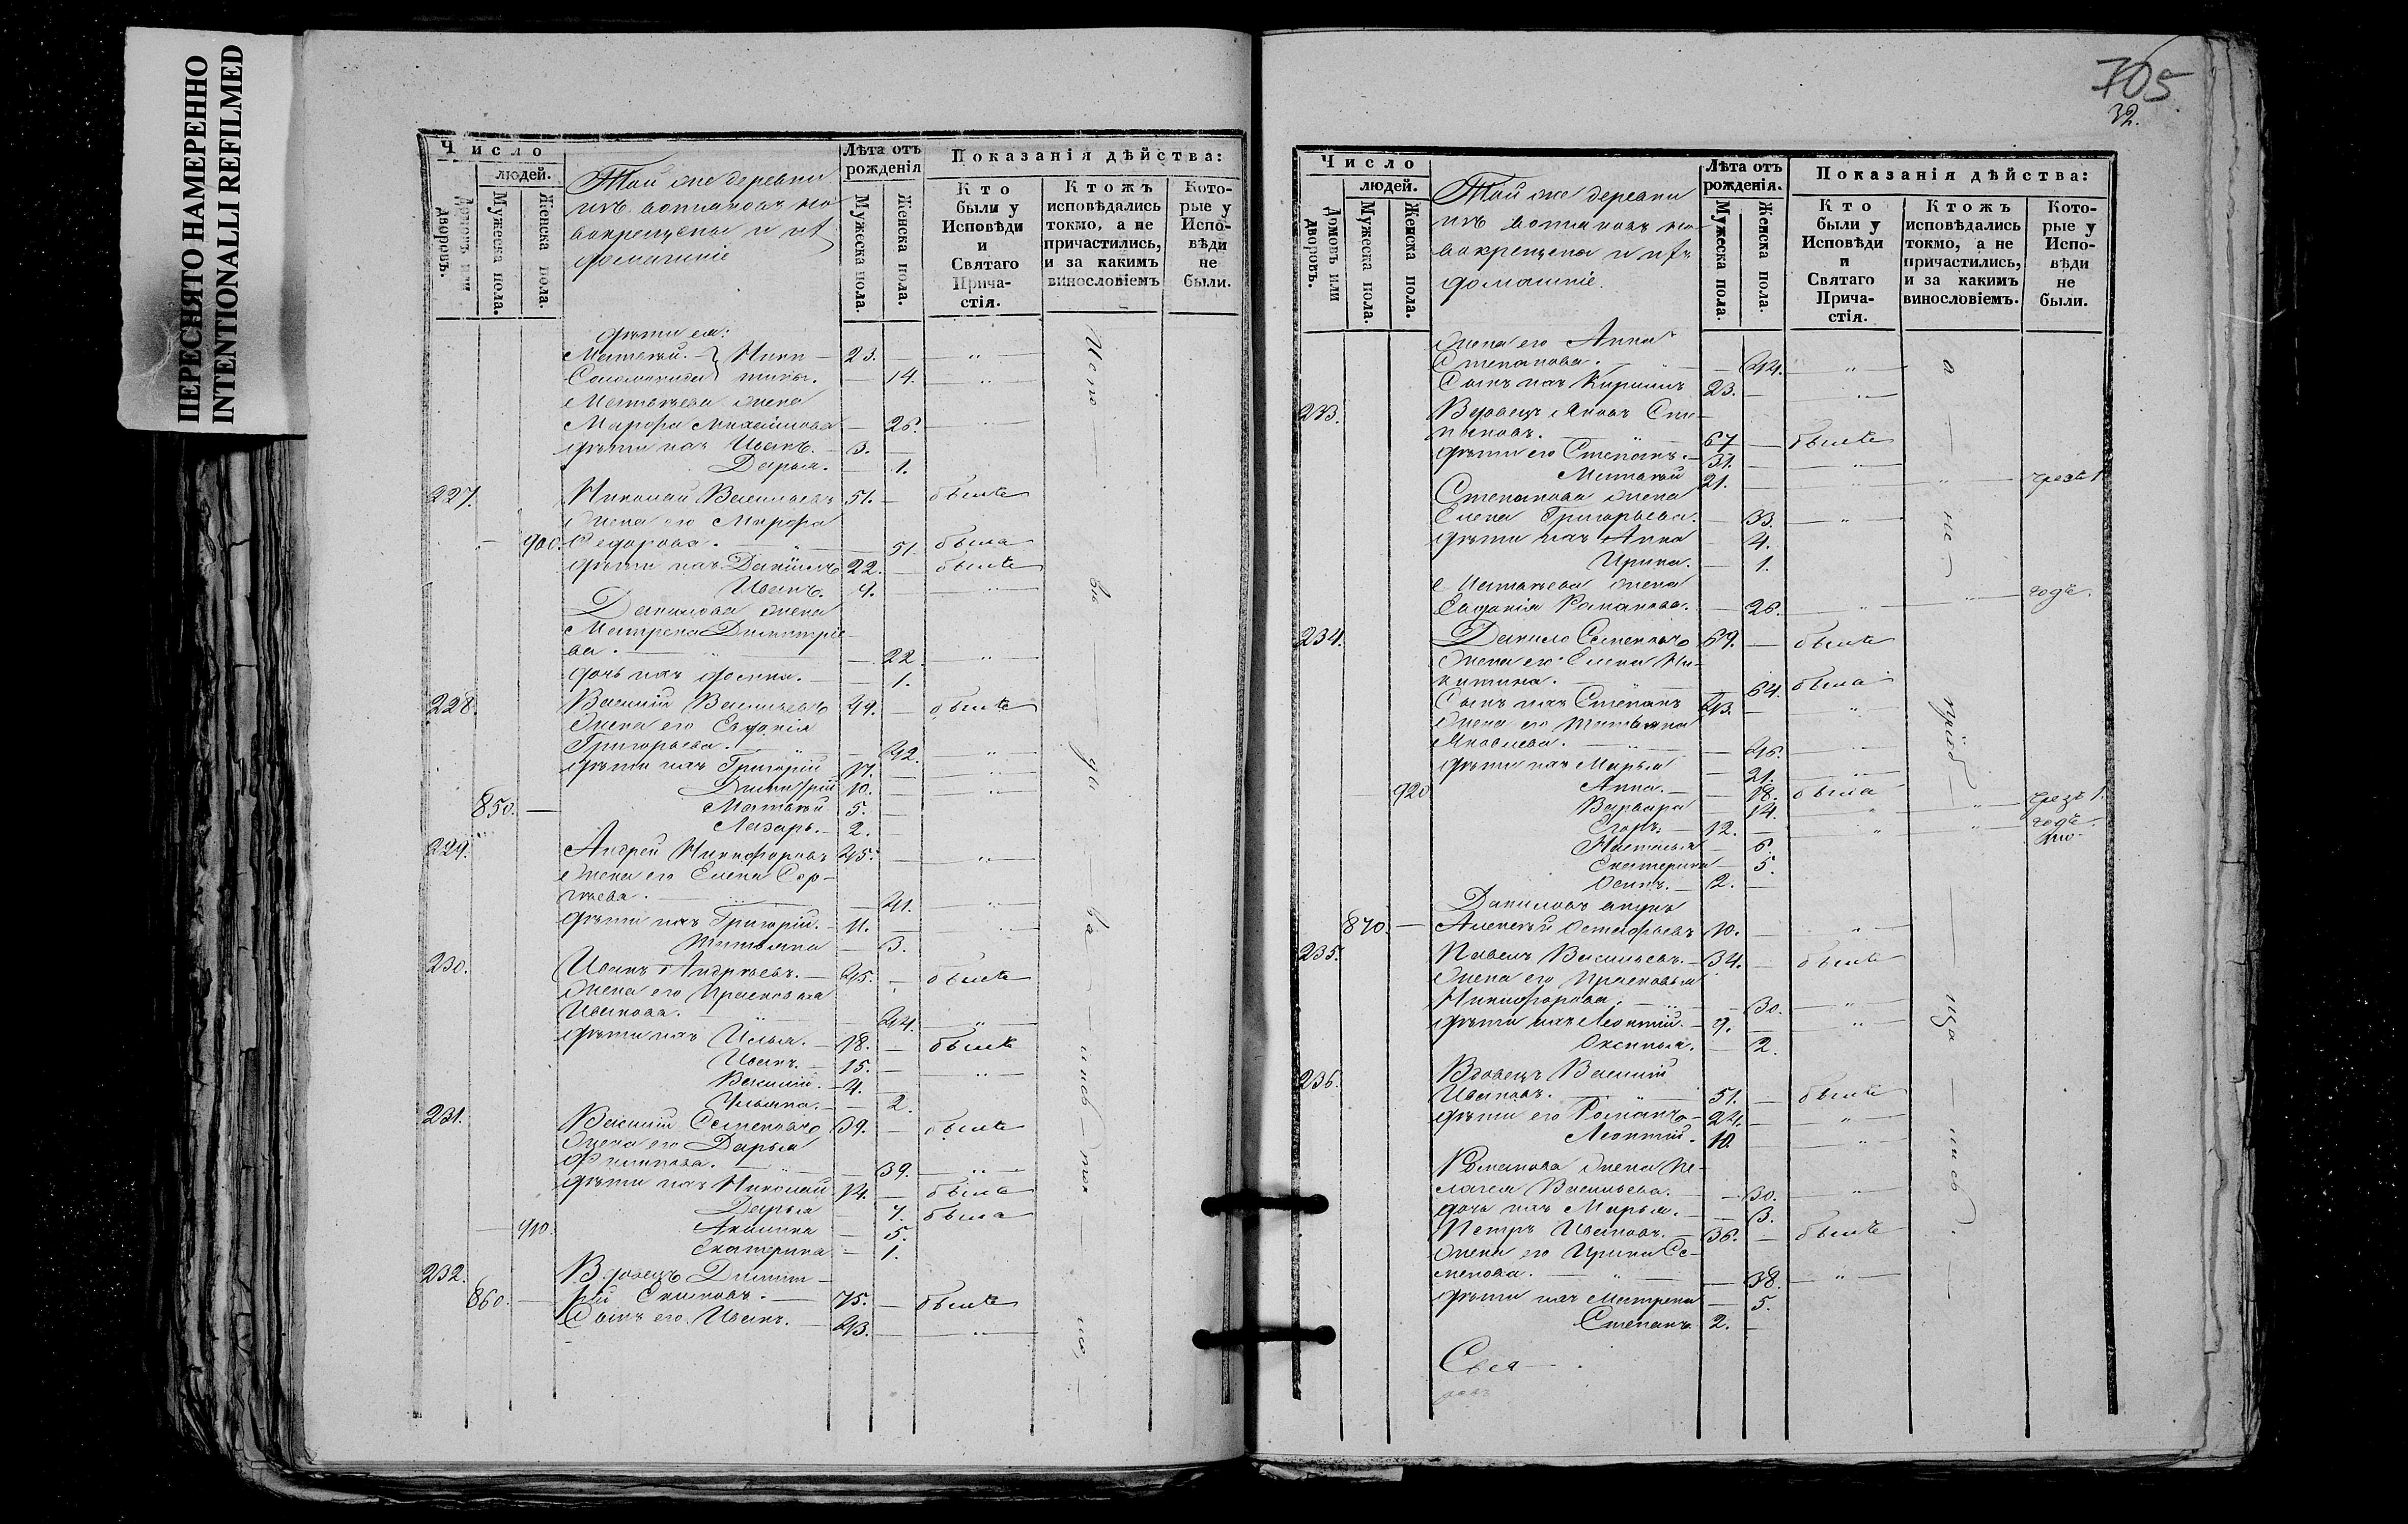 ПЕРЕСНЯТО НАМЕРЕННО
INTENTIONALLI REFILMED
Число
людей.
Домовъ или дворовъ.
Мужеска пола.
Женска пола.
Той же деревни
изъ вотяковъ но
вокрещены и ихъ
домашніе
Лѣта отъ рожденія
Мужеска пола.
Женска пола.
Показанія дѣйства:
Кто были у Исповѣди и Святаго Прича-стія.
Ктожъ исповѣдались токмо, а не причастились, и за какимъ винословіемъ
Кото-рые у Испо-вѣди не были.
дѣти ея:
Матвѣй. Ники- 23.
Соломонида тины. 14.
Матвѣева жена
Марѳа Михайлова 26.
дѣти ихъ Иванъ. 3.
Дарья. 1.
227. Николай Васильевъ 51. былъ
жена его Марѳа
900. Федорова. 51. была
дѣти ихъ Даніилъ 22. былъ
Иванъ. 9.
Данилова жена
Матрена Димитріе-
ва. 22.
дочь ихъ 1.
228. Василій Васильевъ 49. былъ
жена его Евдокія
Григорьева. 42.
дѣти ихъ Григорій 17.
Димитрій 10.
850. Матвѣй 5.
Лазарь. 2.
229. Андрей Никифоровъ 45.
жена его Елена Сер-
гѣева. 41.
дѣти ихъ Григорій. 11.
Татьяна 3.
230. Иванъ Андреевъ. 45. былъ
жена его Прасковья
Иванова. 44.
дѣти ихъ Илья. 18. былъ
Иванъ. 15.
Василій. 4.
Ульяна. 2.
231. Василій Семеновъ 39. былъ
жена его Дарья
Филипова. 39.
дѣти ихъ Николай 14. былъ
Дарья 7. была
910. Акилина 5.
Екатерина 1.
232. Вдовецъ Димит-
860. рій 75. былъ
Сынъ его Иванъ. 43.
705
32.
Число
людей.
Домовъ или дворовъ.
Мужеска пола.
Женска пола.
Той же деревни
изъ вотяковъ но
вокрещена и ихъ
домашніе.
Лѣта отъ рожденія.
Мужеска пола.
Женска пола.
Показанія дѣйства:
Кто были у Исповѣди и Святаго Прича-стія.
Ктожъ исповѣдались токмо, а не причастились, и за какимъ винословіемъ.
Кото-рые у Испо-вѣди не были.
жена его Анна
Степанова. 44.
Сынъ ихъ Кирилъ 23.
233. Вдовецъ Яковъ Сте-
пановъ. 67 былъ
дѣти его Степанъ. 31.
Матвѣй 21. чрезъ 1.
Степанова жена
Елена Григорьева. 33.
дѣти ихъ Анна 4.
Ирина. 1.
Матвѣева жена
Евдокія Романова. 26. годъ.
234. Данило Семеновъ 69. былъ
жена его Елена Ни-
китина. 64. была
Сынъ ихъ Степанъ 43.
жена его Татьяна
Яковлева. 46.
дѣти ихъ Марья 21.
920 Анна. 18. была
Варвара 14. чрезъ 1.
Егоръ 12. годъ.
Наталья 6.
Екатерина 5.
Осипъ. 2.
Даниловъ внукъ
870. Алексѣй Остафьевъ 10.
235. Павелъ Васильевъ. 34. былъ
жена его Прасковья
Никифорова. 30.
дѣти ихъ Леонтій. 9.
Оксинья. 2.
236. Вдовецъ Василій
Ивановъ. 51. былъ
дѣти его Романъ 24.
Леонтій. 10.
Романова жена Пе-
лагея Васильева. 30.
дочь ихъ Марья. 3.
Петръ Ивановъ. 36. былъ
жена его Ирина Се-
менова. 38.
дѣти ихъ Матрена 5.
Степанъ 2.